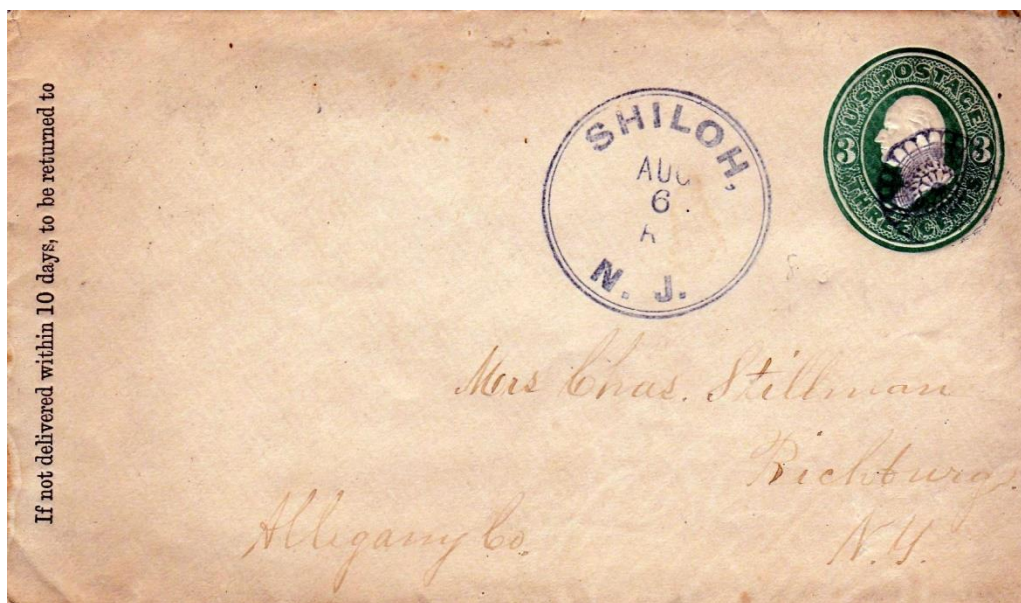 If not delivered within 10 days, to be returned to
SHILOH,
AUG
6
N. J.
U.S. POSTAGE
3 3
THREE CENTS
Mrs Chas. Stillman
Richburg
Allegany Co.
N.Y.